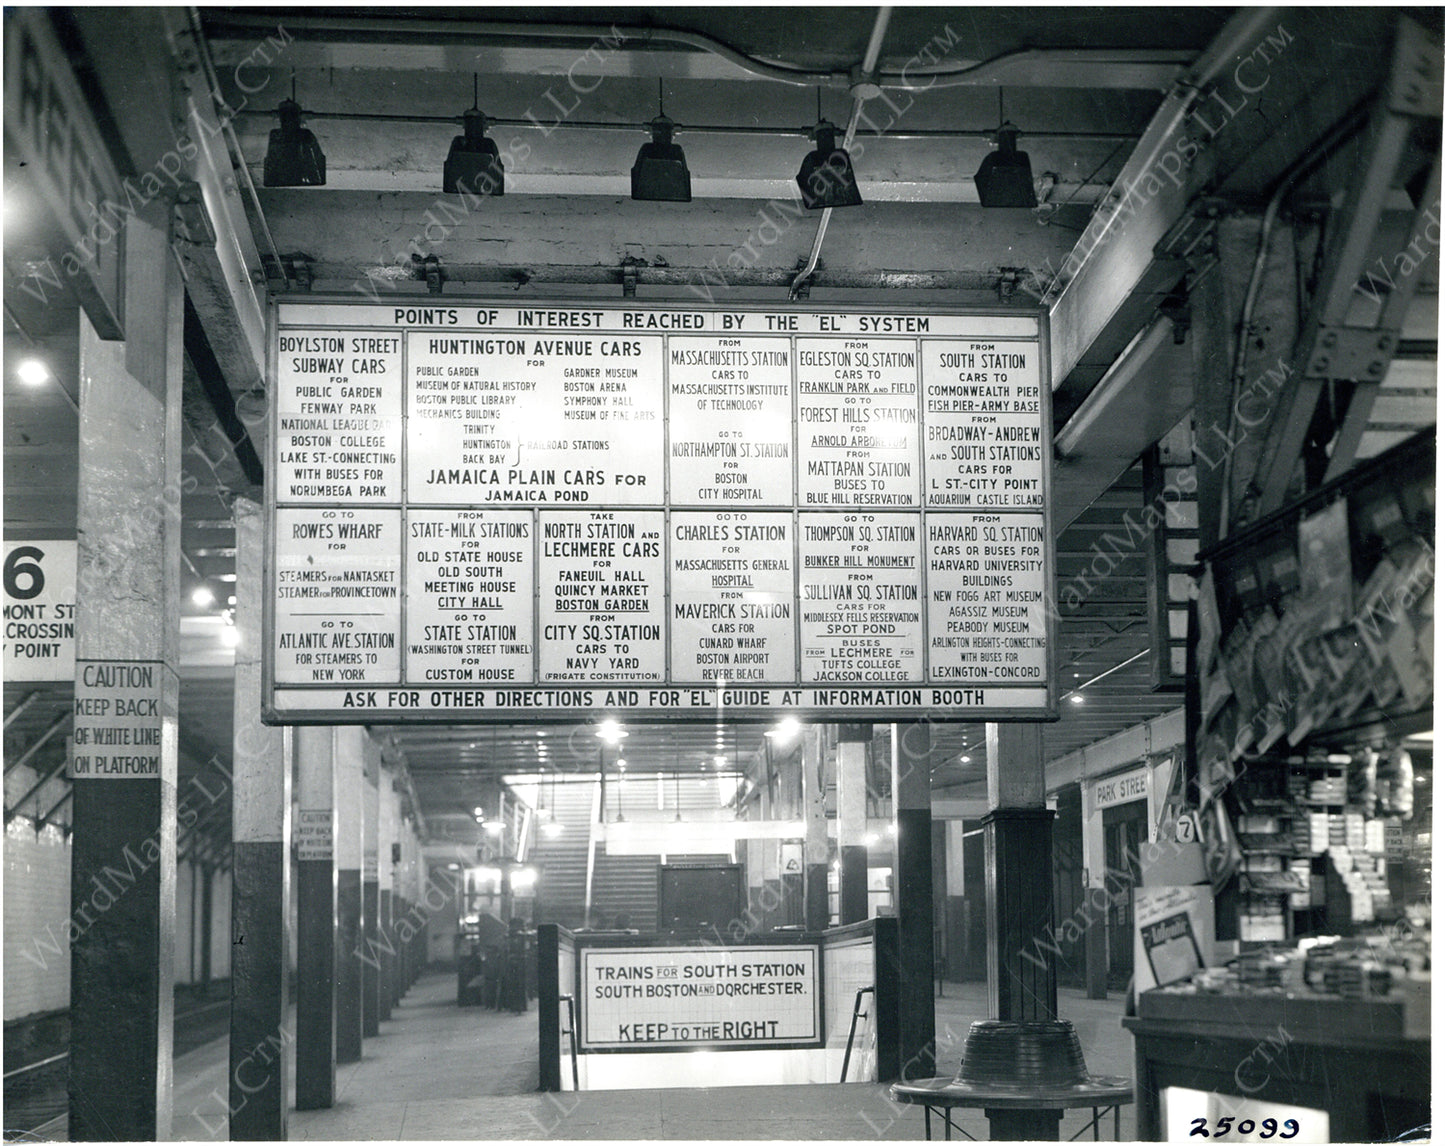 POINTS OF INTEREST REACHED BY THE "EL" SYSTEM
BOYLSTON STREET
SUBWAY CARS
FOR
PUBLIC GARDEN
FENWAY PARK
NATIONAL LEAGUE
BOSTON COLLEGE
LAKE ST.-CONNECTING
WITH BUSES FOR
NORUMBEGA PARK
HUNTINGTON AVENUE CARS
FOR
PUBLIC GARDEN
MUSEUM OF NATURAL HISTORY
BOSTON PUBLIC LIBRARY
MECHANICS BUILDING
GARDNER MUSEUM
BOSTON ARENA
SYMPHONY HALL
MUSEUM OF FINE ARTS
TRINITY
HUNTINGTON
BACK BAY
RAILROAD STATIONS
JAMAICA PLAIN CARS FOR
JAMAICA POND
FROM
MASSACHUSETTS STATION
CARS TO
MASSACHUSETTS INSTITUTE
OF TECHNOLOGY
GO TO
NORTHAMPTON ST. STATION
FOR
BOSTON
CITY HOSPITAL
FROM
EGLESTON SQ. STATION
CARS TO
FRANKLIN PARK AND FIELD
GO TO
FOREST HILLS STATION
FOR
ARNOLD ARBORETUM
FROM
MATTAPAN STATION
BUSES TO
BLUE HILL RESERVATION
FROM
SOUTH STATION
CARS TO
COMMONWEALTH PIER
FISH PIER-ARMY BASE
FROM
BROADWAY-ANDREW
AND SOUTH STATIONS
CARS FOR
L ST.-CITY POINT
AQUARIUM CASTLE ISLAND
GO TO
ROWES WHARF
FOR
STEAMERS FOR NANTASKET
STEAMER FOR PROVINCETOWN
GO TO
ATLANTIC AVE. STATION
FOR STEAMERS TO
NEW YORK
FROM
STATE-MILK STATIONS
FOR
OLD STATE HOUSE
OLD SOUTH
MEETING HOUSE
CITY HALL
GO TO
STATE STATION
(WASHINGTON STREET TUNNEL)
FOR
CUSTOM HOUSE
TAKE
NORTH STATION AND
LECHMERE CARS
FOR
FANEUIL HALL
QUINCY MARKET
BOSTON GARDEN
FROM
CITY SQ. STATION
CARS TO
NAVY YARD
(FRIGATE CONSTITUTION)
GO TO
CHARLES STATION
FOR
MASSACHUSETTS GENERAL
HOSPITAL
FROM
MAVERICK STATION
CARS FOR
CUNARD WHARF
BOSTON AIRPORT
REVERE BEACH
GO TO
THOMPSON SQ. STATION
FOR
BUNKER HILL MONUMENT
FROM
SULLIVAN SQ. STATION
CARS FOR
MIDDLESEX FELLS RESERVATION
SPOT POND
BUSES
FROM LECHMERE FOR
TUFTS COLLEGE
JACKSON COLLEGE
FROM
HARVARD SQ. STATION
CARS OR BUSES FOR
HARVARD UNIVERSITY
BUILDINGS
NEW FOGG ART MUSEUM
AGASSIZ MUSEUM
PEABODY MUSEUM
ARLINGTON HEIGHTS-CONNECTING
WITH BUSES FOR
LEXINGTON-CONCORD
ASK FOR OTHER DIRECTIONS AND FOR "EL" GUIDE AT INFORMATION BOOTH
6
MONT ST
CROSSIN
Y POINT
CAUTION
KEEP BACK
OF WHITE LINE
ON PLATFORM
CAUTION
KEEP BACK
OF WHITE LINE
ON PLATFORM
PARK STREET
7
TRAINS FOR SOUTH STATION
SOUTH BOSTON AND DORCHESTER.
KEEP TO THE RIGHT
Atlantic
25099
WardMaps LLC™